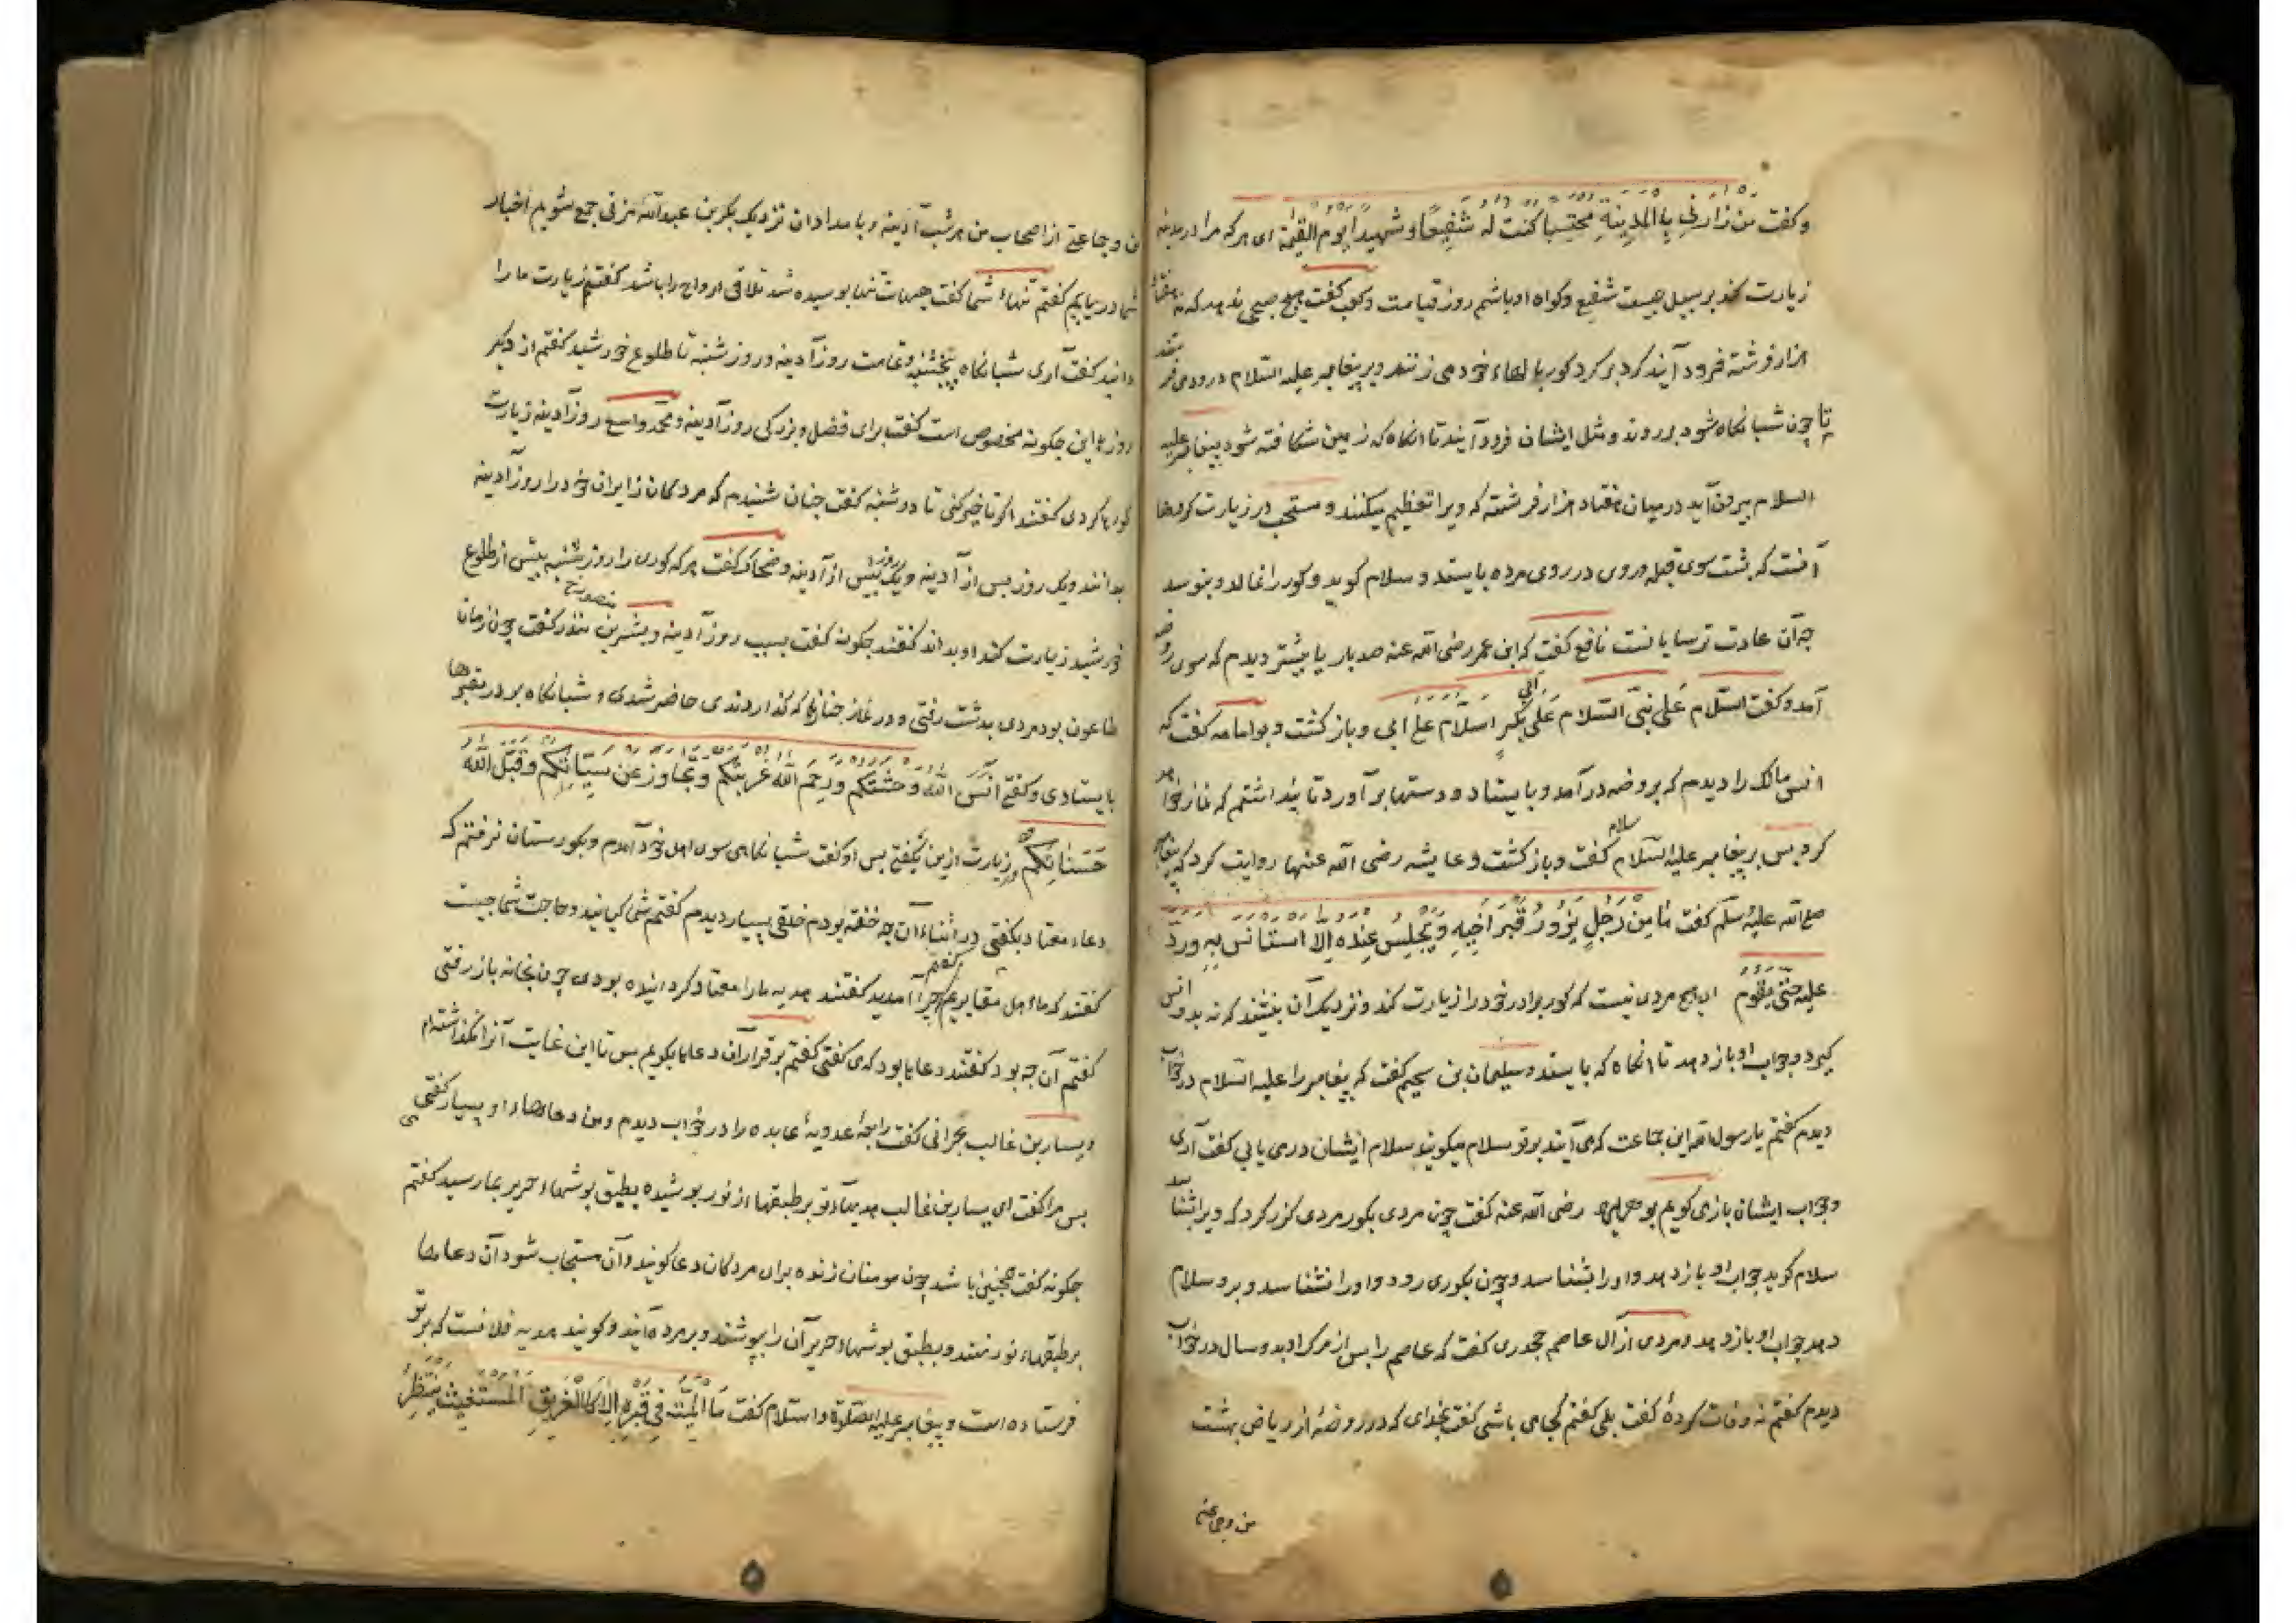 و گفت من زارنی بالمدینة محتسبا کنت له شفیعا و شهیدا یوم القیمة ای هر که مرا در مدینه
زیارت کند بر سبیل حسبت شفیع و گواه او باشم روز قیامت و کعب گفت هیچ صبحی ندمد که نه هفتاد
هزار فرشته فرود آیند گرد بر گرد گور بالهاء خود می زنند و بر پیغامبر علیه السلام درود می فرستند
تا چون شبانگاه شود بر روند و مثل ایشان فرود آیند تا انگاه که زمین شکافته شود پیغامبر علیه
السلام بیرون آید در میان هفتاد هزار فرشته که ویرا تعظیم میکنند و مستحب در زیارت گورها
آنست که پشت سوی قبله و روی در روی مرده بایستد و سلام گوید و گور را نمالد و نبوسد
چه آن عادت ترسایانست نافع گفت که ابن عمر رضی الله عنه صد بار یا بیشتر دیدم که سوی روضه
آمد و گفت السلام علی نبی السلام علی ابی بکر السلام علی ابی و باز گشت و بوامامه گفت که
انس مالک را دیدم که بروضه در آمد و بایستاد و دستها بر آورد تا پنداشتم که نماز خواهد
کرد پس بر پیغامبر علیه السلام سلام گفت و باز گشت و عایشه رضی الله عنها روایت کرد که پیغامبر
صلی الله علیه و سلم گفت ما من رجل یزور قبر اخیه و یجلس عنده الا استانس به و رد
علیه حتی یقوم ای هیچ مردی نیست که گور برادر خود را زیارت کند و نزدیک آن بنشیند که نه بدو انس
گیرد و جواب او باز دهد تا انگاه که بایستد و سلیمان بن سحیم گفت که پیغامبر را علیه السلام در خواب
دیدم گفتم یا رسول الله این جماعت که می آیند بر تو سلام میگویند سلام ایشان در می یابی گفت آری
و جواب ایشان باز می گویم بو هریره رضی الله عنه گفت چون مردی بگور مردی گزر کرد که ویرا شناسد
سلام گوید جواب او باز دهد و او را بشناسد و چون بگوری رود و او را نشناسد و برو سلام
دهد جواب او باز دهد و مردی از آل عاصم جحدری گفت که عاصم را پس از مرگ او بدو سال در خواب
دیدم گفتم نه وفات کردهٔ گفت بلی گفتم کجا می باشی گفت بخدای که در روضهٔ از ریاض بهشت
من و جماعتی
من و جماعتی از اصحاب من هر شب آدینه و بامدادان نزدیک بکر بن عبدالله مزنی جمع شویم اخبار
شما دریابیم گفتم تنهاء شما گفت هیهات تنها بوسیده شد تلاقی ارواح را باشد گفتم زیارت ما را
دانید گفت آری شبانگاه پنجشنبه و تمامت روز آدینه و روز شنبه تا طلوع خورشید گفتم از دیگر
روزها این چگونه مخصوص است گفت برای فضل و بزرگی روز آدینه و محمد واسع روز آدینه زیارت
گورها کردی گفتند اگر تاخیر کنی تا دوشنبه گفت چنان شنیدم که مردگان زایران خود را روز آدینه
بدانند و یک روز پس از آدینه و یک روز پیش از آدینه و ضحاک گفت هر که گوری را روز شنبه پیش از طلوع
خورشید زیارت کند او بداند گفتند چگونه گفت بسبب روز آدینه و بشر بن منصور گفت چون زمان
طاعون بود مردی بدشت رفتی و در نماز جنازها که گذاردندی حاضر شدی و شبانگاه بر در مقبرها
بایستادی و گفتی انس الله وحشتکم و رحم الله غربتکم و تجاوز عن سیاتکم و قبل الله
حسناتکم و زیادت ازین نگفتی پس او گفت شبانگاهی سوی اهل خود آمدم و بگورستان نرفتم که
دعاء معتاد بگفتی در اثناء آن چه خفته بودم خلقی بسیار دیدم گفتم شما کیانید و حاجت شما چیست
گفتند که ما اهل مقابریم گفتم چرا آمدید گفتند هدیه ما را معتاد گردانیده بودی چون بخانه باز رفتی
گفتم آن چه بود گفتند دعاها بود که می گفتی گفتم بر قرار آن دعاها بگویم پس تا این غایت آنرا نگذاشته ام
و بسار بن غالب بحرانی گفت رابعهٔ عدویهٔ عابده را در خواب دیدم و من دعاهاء او بسیار گفتمی
پس مرا گفت ای بسار بن غالب هدیهاء تو بر طبقهاء از نور پوشیده بطبق پوشهاء حریر بما رسید گفتم
چگونه گفت همچنین باشد چون مومنان زنده برای مردگان دعا گویند و آن مستجاب شود آن دعاها
بر طبقهاء نور نهند و بطبق پوشهاء حریر آن را بپوشند و بر مرده آیند و گویند هدیه فلانست که بر تو
فرستاده است و پیغامبر علیه الصلوة و السلام گفت ما المیت فی قبره الا کالغریق المستغیث ینتظر